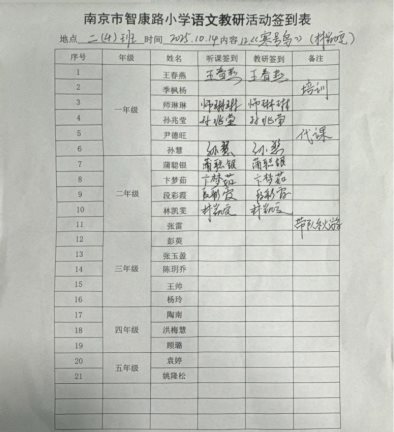 南京市智康路小学语文教研活动签到表
地点 二(4)班 时间 2025.10.14 内容 12.《寒号鸟》(林凯雯)
序号 年级 姓名 听课签到 教研签到 备注
1 王春燕 王春燕 王春燕
2 季枫杨 培训
一年级
3 师琳琳 师琳琳 师琳琳
4 孙兆莹 孙兆莹 孙兆莹
5 尹德旺 代课
6 孙慧 孙慧 孙慧
7 蒲聪银 蒲聪银 蒲聪银
8 卞梦茹 卞梦茹 卞梦茹
二年级
9 段彩霞 段彩霞 段彩霞
10 林凯雯 林凯雯 林凯雯
11 张雷 带队秋游
12 彭英
13 张玉盈
三年级
14 陈玥乔
15 王帅
16 杨玲
17 陶南
18 四年级 洪梅慧
19 顾璐
20 袁婷
五年级
21 姚隆松